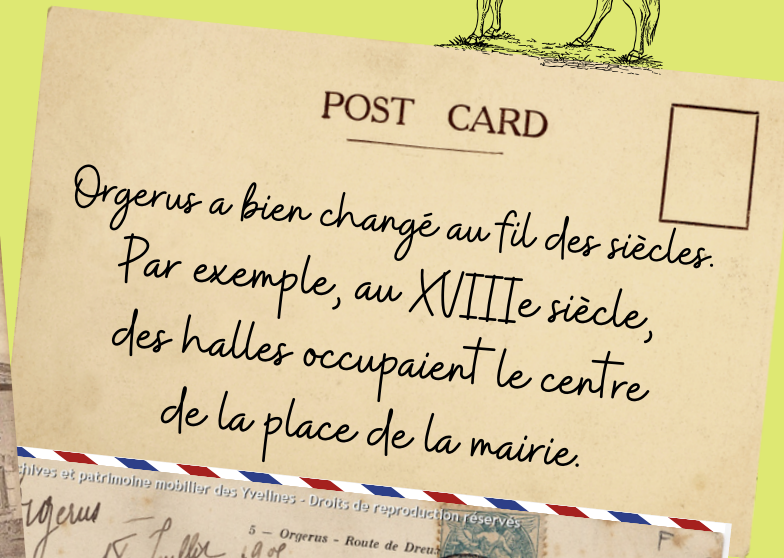 POST CARD
Orgerus a bien changé au fil des siècles.
Par exemple, au XVIIIe siècle,
des halles occupaient le centre
de la place de la mairie.
chives et patrimoine mobilier des Yvelines - Droits de reproduction réservés
rgerus
5 - Orgerus - Route de Dreu
Juillet
F